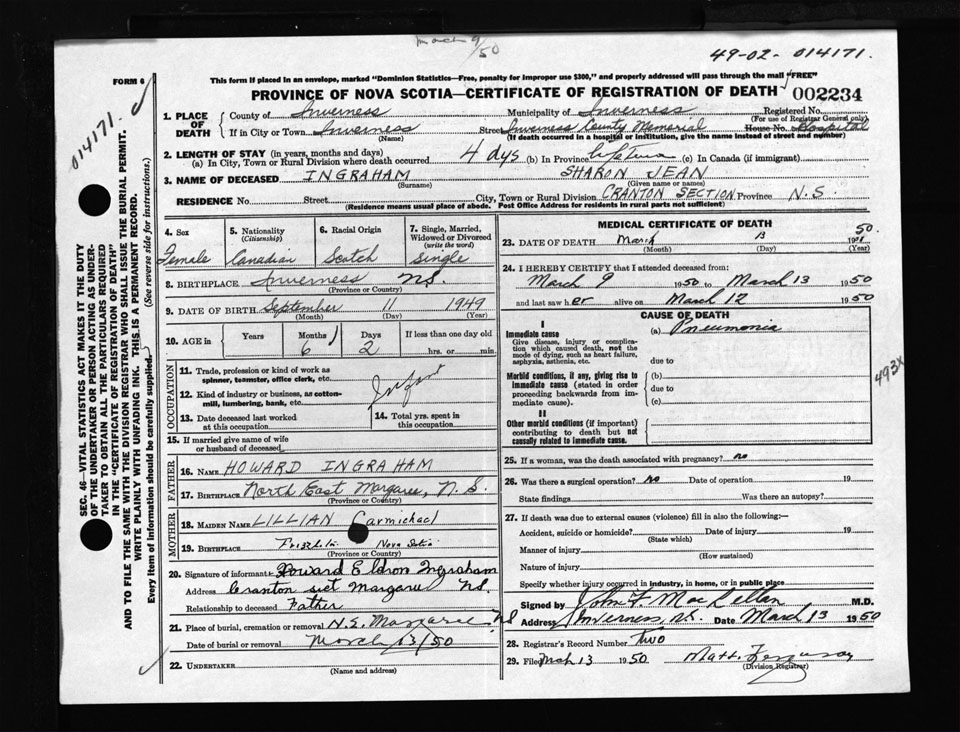 March 9/50
49-02-014171.
FORM 6
This form if placed in an envelope, marked "Dominion Statistics—Free, penalty for improper use $300," and properly addressed will pass through the mail "FREE"
PROVINCE OF NOVA SCOTIA—CERTIFICATE OF REGISTRATION OF DEATH 002234
014171.
SEC. 46—VITAL STATISTICS ACT MAKES IT THE DUTY
OF THE UNDERTAKER OR PERSON ACTING AS UNDER-
TAKER TO OBTAIN ALL THE PARTICULARS REQUIRED
IN THE "CERTIFICATE OF REGISTRATION OF DEATH"
AND TO FILE THE SAME WITH THE DIVISION REGISTRAR WHO SHALL ISSUE THE BURIAL PERMIT.
WRITE PLAINLY WITH UNFADING INK. THIS IS A PERMANENT RECORD.
Every item of information should be carefully supplied. (See reverse side for instructions.)
1. PLACE OF DEATH
County of Inverness Municipality of Inverness Registered No.
(For use of Registrar General only)
If in City or Town Inverness Street Inverness County Memorial House No. Hospital
(Name) (If death occurred in a hospital or institution, give the name instead of street and number)
2. LENGTH OF STAY (in years, months and days)
(a) In City, Town or Rural Division where death occurred 4 dys (b) In Province Lifetime (c) In Canada (if immigrant)
3. NAME OF DECEASED INGRAHAM SHARON JEAN
(Surname) (Given name or names)
RESIDENCE No. Street City, Town or Rural Division CRANTON SECTION Province N.S.
(Residence means usual place of abode. Post Office Address for residents in rural parts not sufficient)
4. Sex 5. Nationality (Citizenship) 6. Racial Origin 7. Single, Married, Widowed or Divorced (write the word)
Female Canadian Scotch Single
8. BIRTHPLACE Inverness NS.
(Province or Country)
9. DATE OF BIRTH September 11 1949
(Month) (Day) (Year)
10. AGE in Years Months Days If less than one day old
6 2 hrs. or min.
OCCUPATION
11. Trade, profession or kind of work as
spinner, teamster, office clerk, etc.
Infant
12. Kind of industry or business, as cotton-
mill, lumbering, bank, etc.
13. Date deceased last worked
at this occupation
14. Total yrs. spent in
this occupation
15. If married give name of wife
or husband of deceased
FATHER
16. NAME HOWARD INGRAHAM
17. BIRTHPLACE North East Margaree, N.S.
(Province or Country)
MOTHER
18. MAIDEN NAME LILLIAN Carmichael
19. BIRTHPLACE Nova Scotia
(Province or Country)
20. Signature of informant Howard Eldron Ingraham
Address Cranton sect Margaree NS.
Relationship to deceased Father
21. Place of burial, cremation or removal N.E. Margaree NS
Date of burial or removal March 13/50
22. UNDERTAKER
(Name and address)
MEDICAL CERTIFICATE OF DEATH
23. DATE OF DEATH March 13 50.
(Month) (Day) (Year)
24. I HEREBY CERTIFY that I attended deceased from:
March 9 1950 to March 13 1950
and last saw her alive on March 12 1950
CAUSE OF DEATH
I
Immediate cause (a) Pneumonia
Give disease, injury or complica-
tion which caused death, not the
mode of dying, such as heart failure,
asphyxia, asthenia, etc. due to
Morbid conditions, if any, giving rise to
immediate cause (stated in order
proceeding backwards from im-
mediate cause).
(b)
due to
(c)
II
Other morbid conditions (if important)
contributing to death but not
causally related to immediate cause.
493X
25. If a woman, was the death associated with pregnancy? No
26. Was there a surgical operation? No Date of operation 19
State findings Was there an autopsy?
27. If death was due to external causes (violence) fill in also the following:—
Accident, suicide or homicide? Date of injury 19
(State which)
Manner of injury
(How sustained)
Nature of injury
Specify whether injury occurred in industry, in home, or in public place
Signed by John F. MacLellan M.D.
Address Inverness, N.S. Date March 13 1950
28. Registrar's Record Number Two
29. Filed Mch 13 1950 Matt. Ferguson
(Division Registrar)